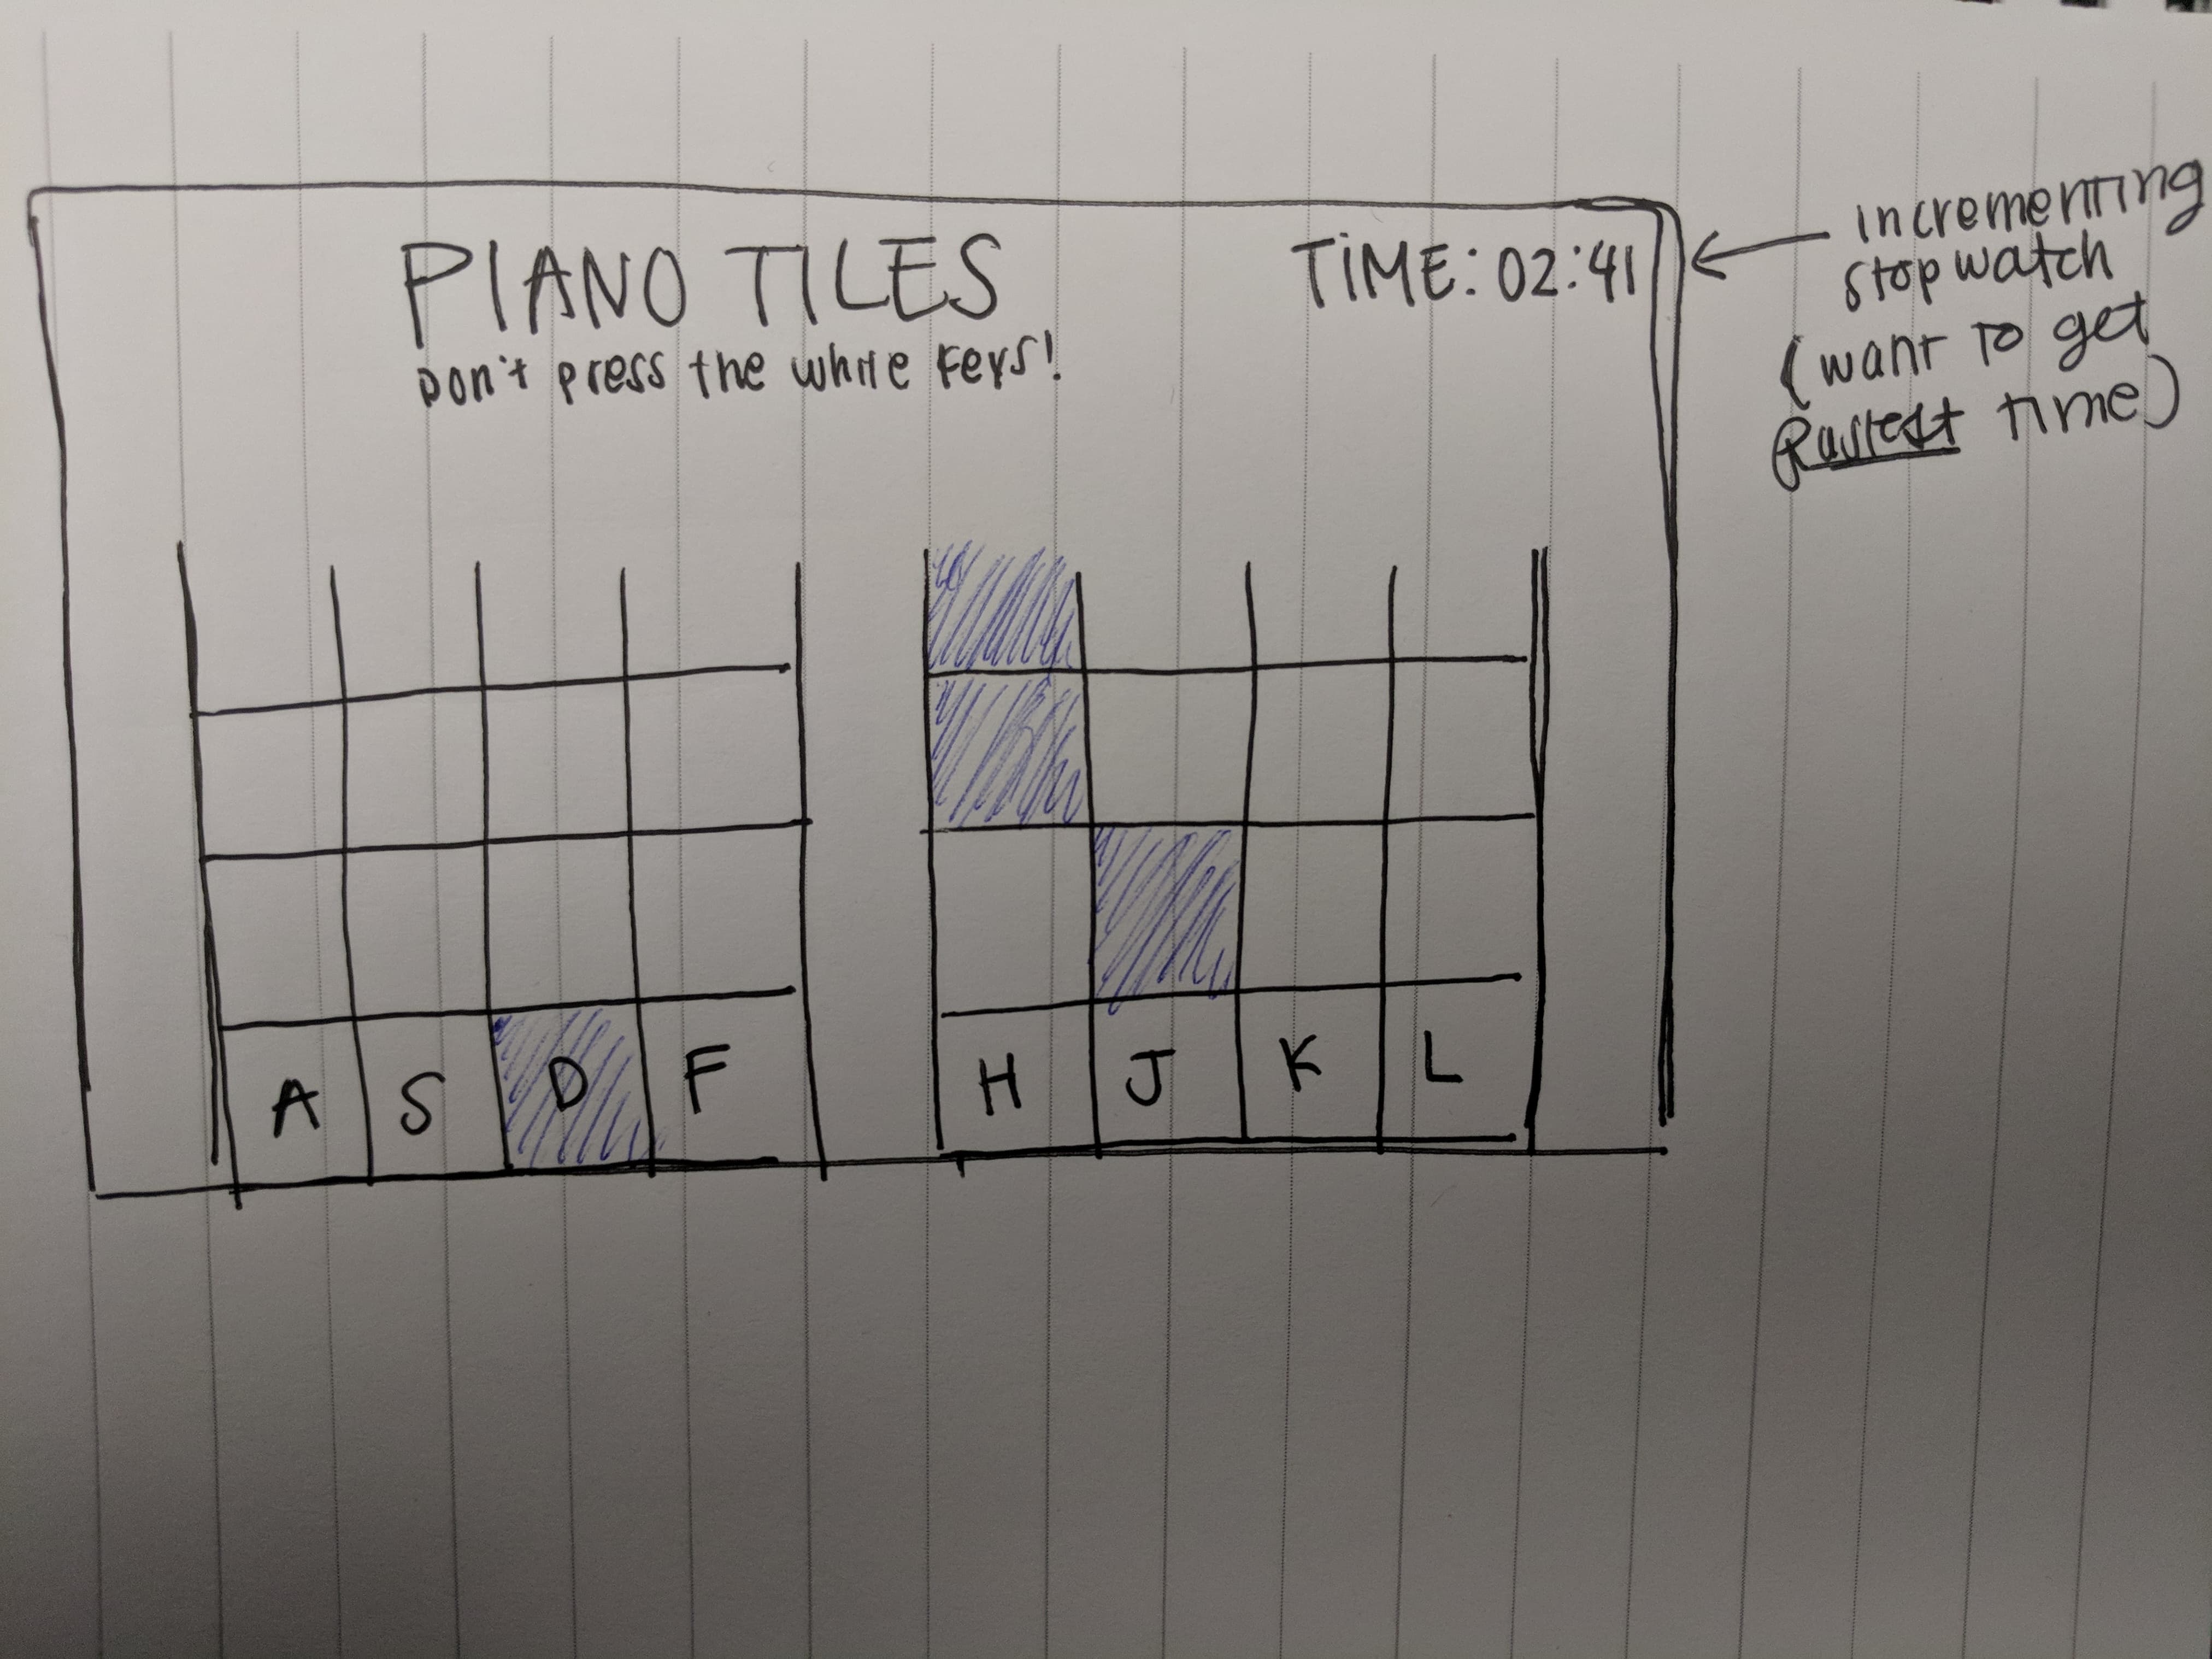 PIANO TILES
Don't press the white keys!
TIME: 02:41
incrementing
stopwatch
(want to get
fastest time)
A S D F
H J K L